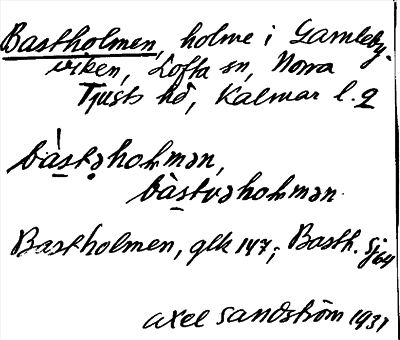 Bastholmen, holme i Gamleby-
viken, Lofta sn, Norra
Tjusts hd, Kalmar l.
bàstəhoḷmən,
bàstvəhoḷmən.
Bastholmen, glk 147; Basth. Sj 64
Axel Sandström 1931